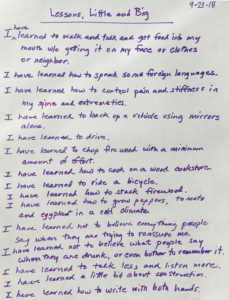 9-23-18
Lessons, Little and Big
I have learned to walk and talk and get food into my
mouth w/o getting it on my face or clothes
or neighbor.
I have learned how to speak some foreign languages.
I have learned how to control pain and stiffness in
my spine and extremeties.
I have learned to back up a vehicle using mirrors
alone.
I have learned to drive.
I have learned to chop firewood with a minimum
amount of effort.
I have learned how to cook on a wood cookstove.
I have learned to ride a bicycle.
I have learned how to stack firewood.
I have learned how to grow peppers, tomato
and eggplant in a cold climate.
I have learned not to believe everything people
say when they are trying to reassure me.
I have learned not to believe what people say
when they are drunk, or even bother to remember it.
I have learned to talk less and listen more.
I have learned a little bit about construction.
I have learned how to write with both hands.